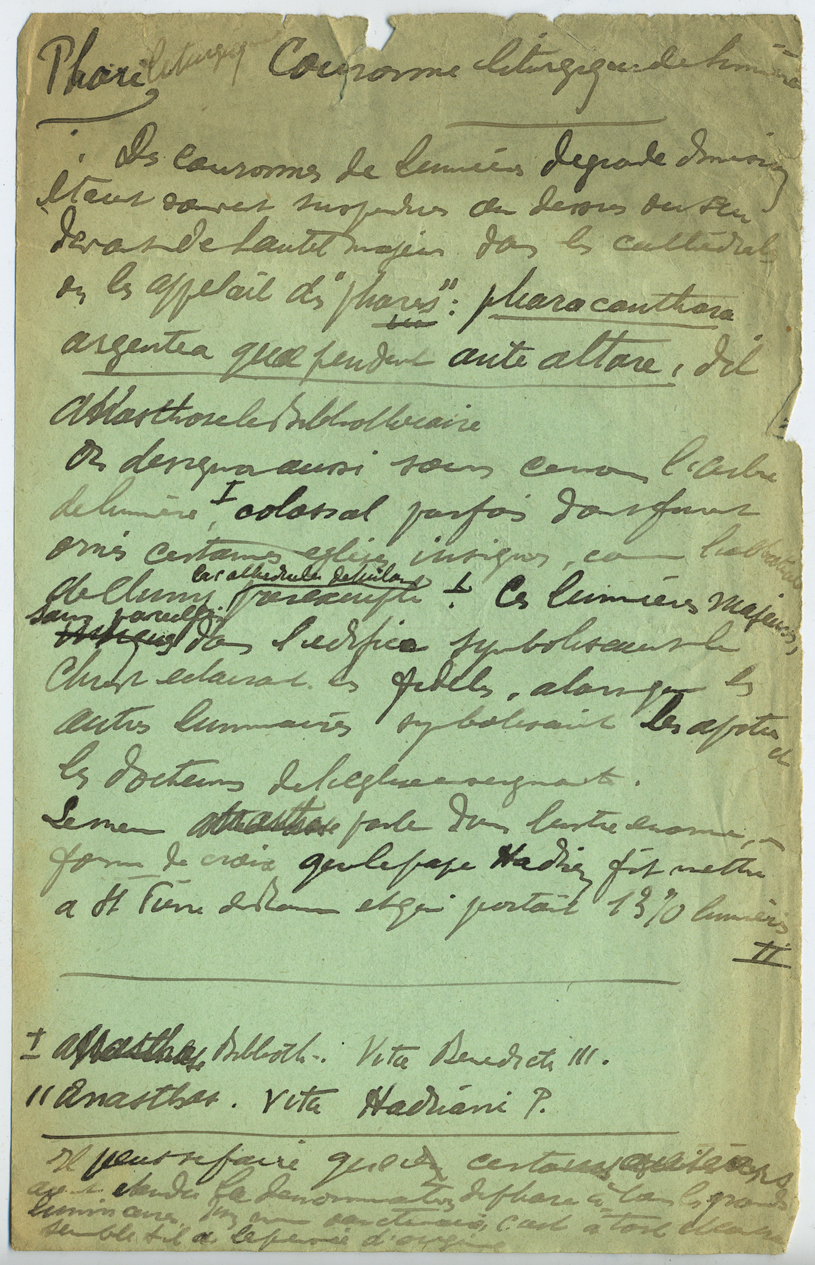 Phare liturgique Couronne liturgique de lumière
Des couronnes de lumières de grande dimension
étaient souvent suspendues au dessus ou
devant de l'autel majeur dans les cathédrales
on les appelait des "phares" : phara canthara
argentea quae pendent ante altare, dit
Anasthase le Bibliothécaire
On designa aussi sous ce nom l'arbre
de lumière, I colossal parfois dont furent
ornés certaines eglises insignes, comme l'abbatiale
de Cluny, la cathédrale de Milan par exemple I Ces lumières majeures,
sans pareilles dans l'edifice symbolisaient le
Christ eclairant les fidèles, alors que les
autres luminaires symbolisaient les apotres et
les docteurs de l'eglise enseignante.
Le meme Anasthase parle d'un lustre enorme, en
forme de croix que le pape Hadrien fit mettre
a St Pierre de Rome et qui portait 1370 lumières
II
I Anasthase Biblioth. Vita Benedicti III.
II Anasthas. Vita Hadriani P.
Il peut se faire que certains
aient etendu la denomination de phare à tous les grands
luminaires, c'est à tort
semble-t-il